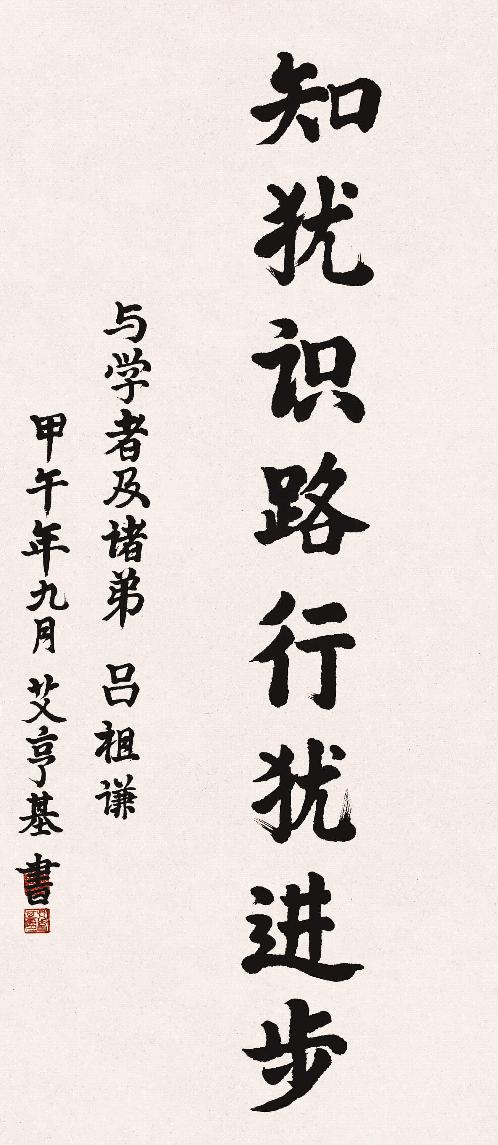 知犹识路行犹进步
与学者及诸弟 吕祖谦
甲午年九月 艾亨基 書